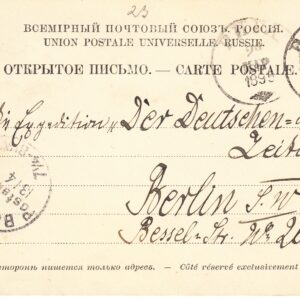 23
ВСЕМІРНЫЙ ПОЧТОВЫЙ СОЮЗЪ. РОССІЯ.
UNION POSTALE UNIVERSELLE. RUSSIE.
ОТКРЫТОЕ ПИСЬМО. — CARTE POSTALE.
1899
Expedition „Der Deutschen
Zeit
Berlin S.W.
Bessel-Str.
13/4
сторонѣ пишется только адресъ. — Côté réservé exclusivement